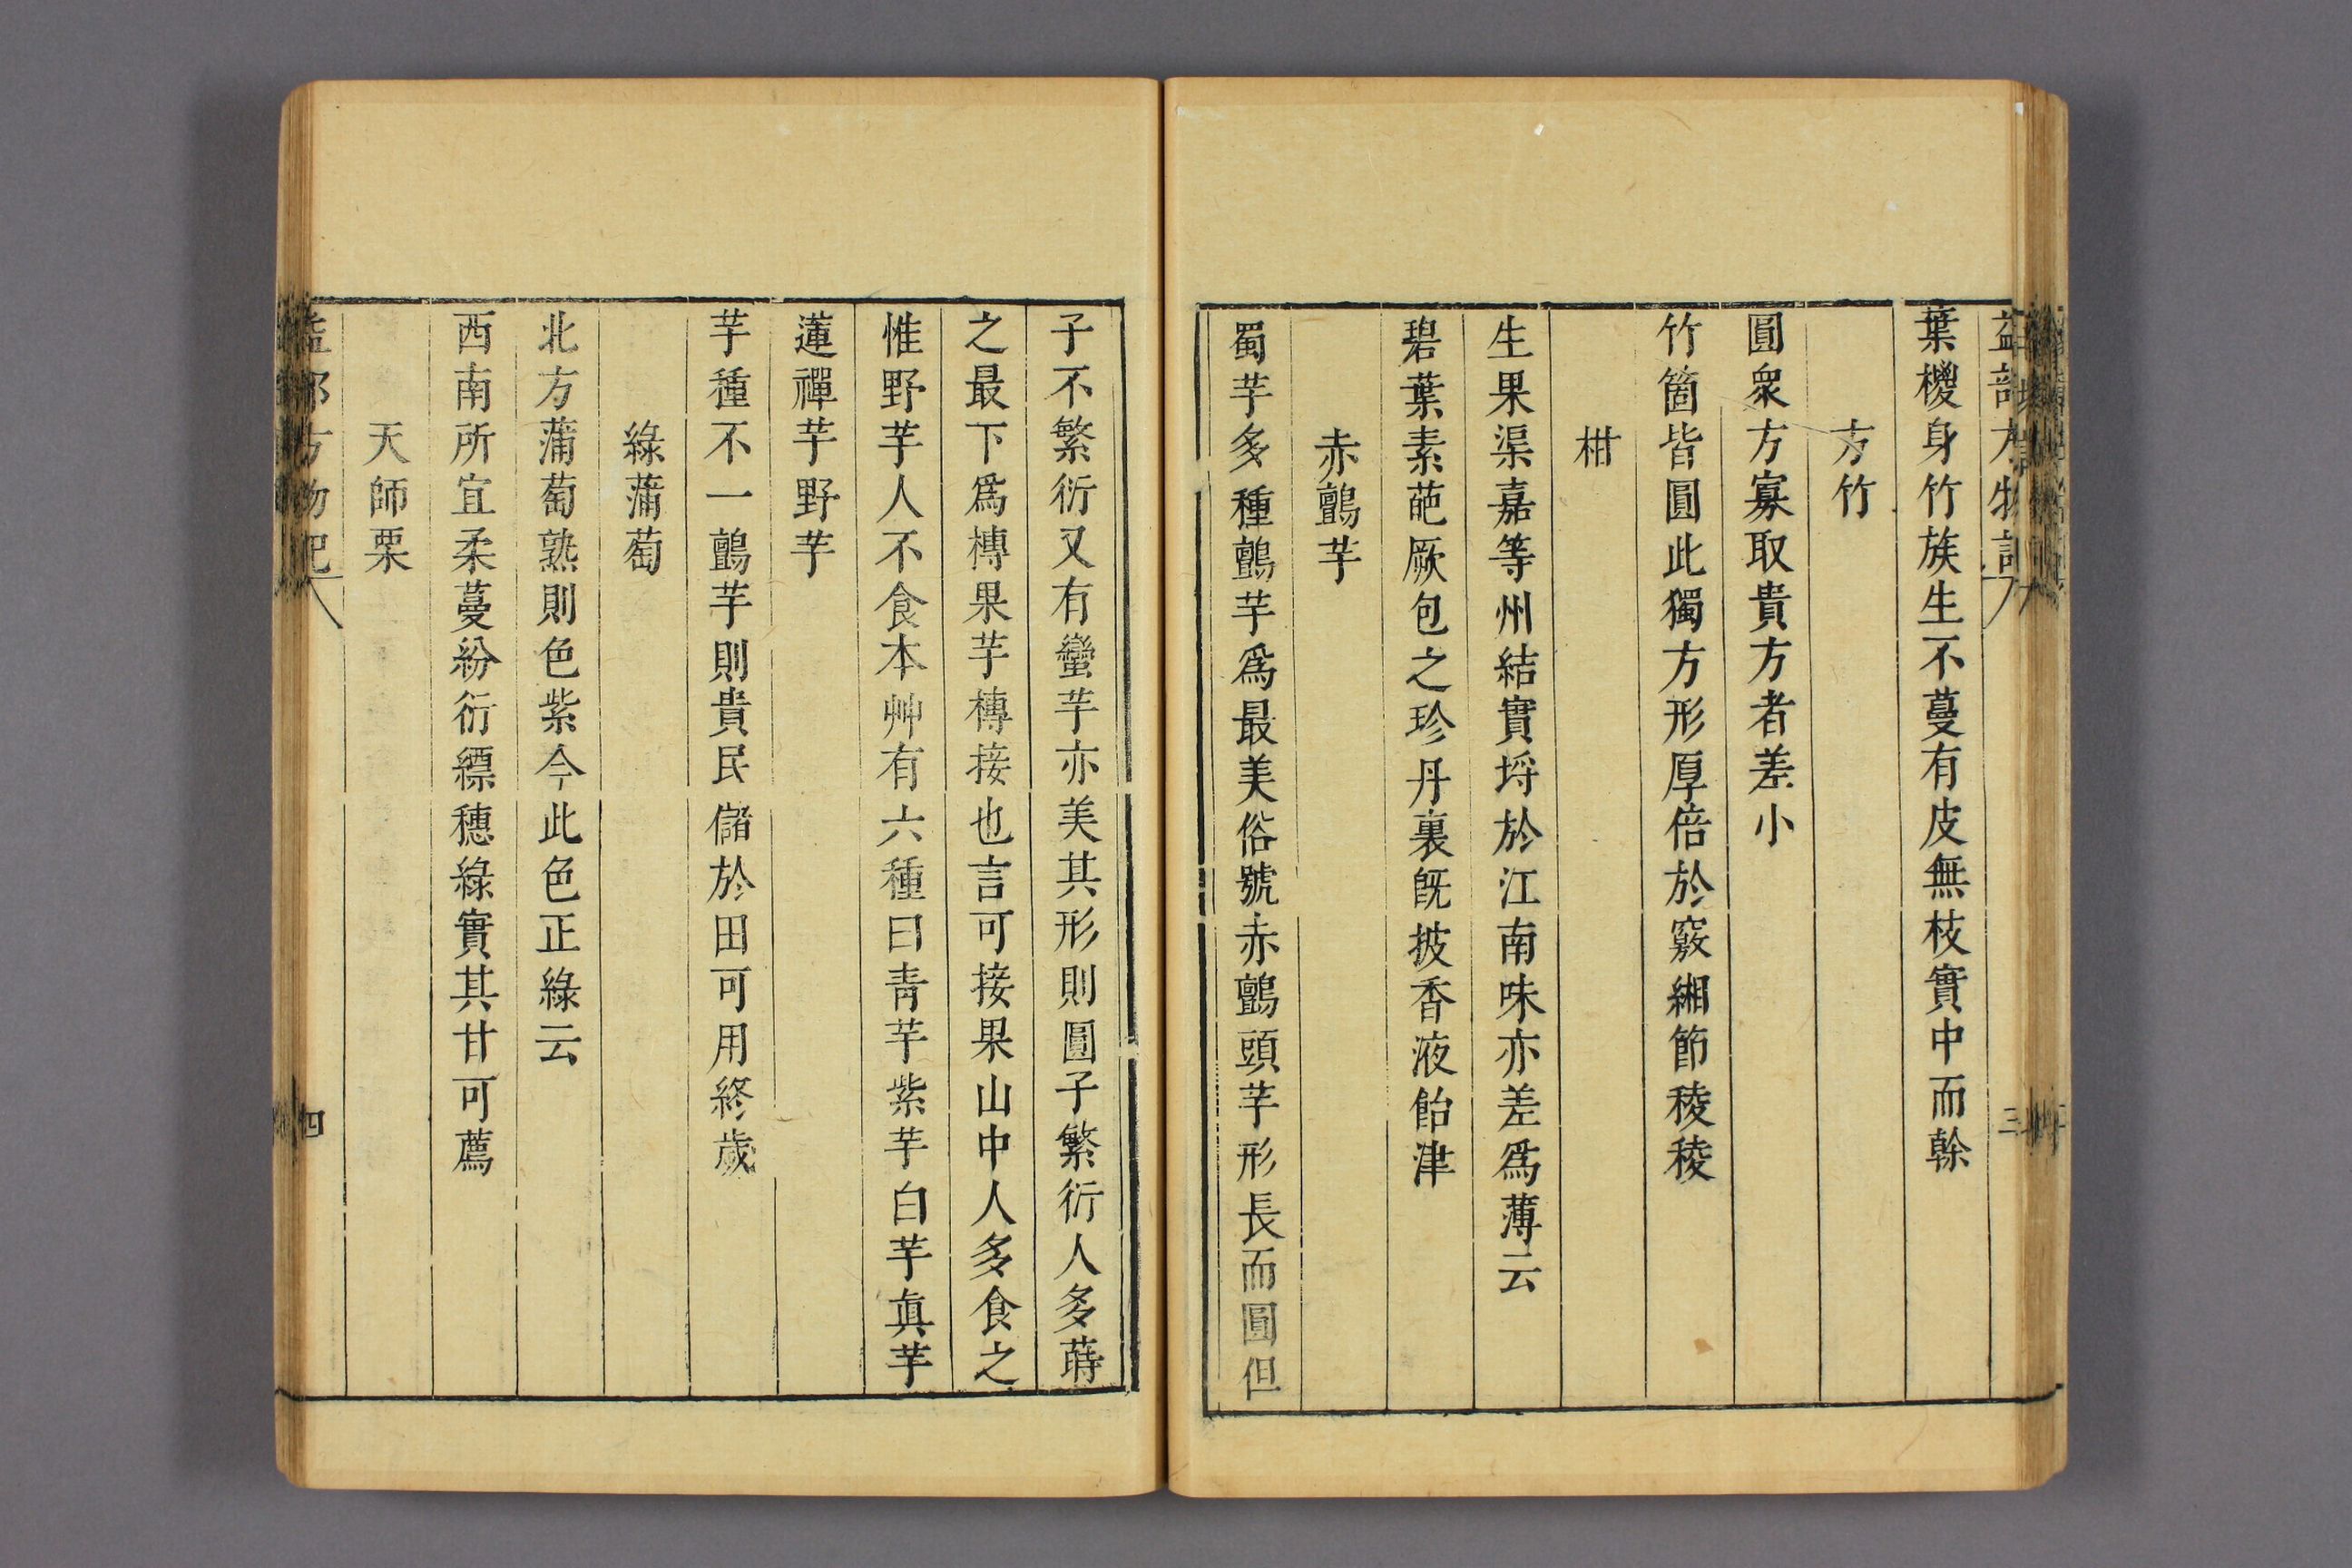 益部方物記
三
葉椶身竹族生不蔓有皮無枝實中而榦
方竹
圓衆方寡取貴方者差小
竹箇皆圓此獨方形厚倍於竅緗節稜稜
柑
生果渠嘉等州結實埒於江南味亦差爲薄云
碧葉素葩厥包之珍丹裏旣披香液飴津
赤鸇芋
蜀芋多種鸇芋爲最美俗號赤鸇頭芋形長而圓但
子不繁衍又有蠻芋亦美其形則圓子繁衍人多蒔
之最下爲榑果芋榑接也言可接果山中人多食之
惟野芋人不食本艸有六種曰青芋紫芋白芋眞芋
蓮禪芋野芋
芋種不一鸇芋則貴民儲於田可用終歲
綠蒲萄
北方蒲萄熟則色紫今此色正綠云
西南所宜柔蔓紛衍縹穗綠實其甘可薦
天師栗
益部方物記
四